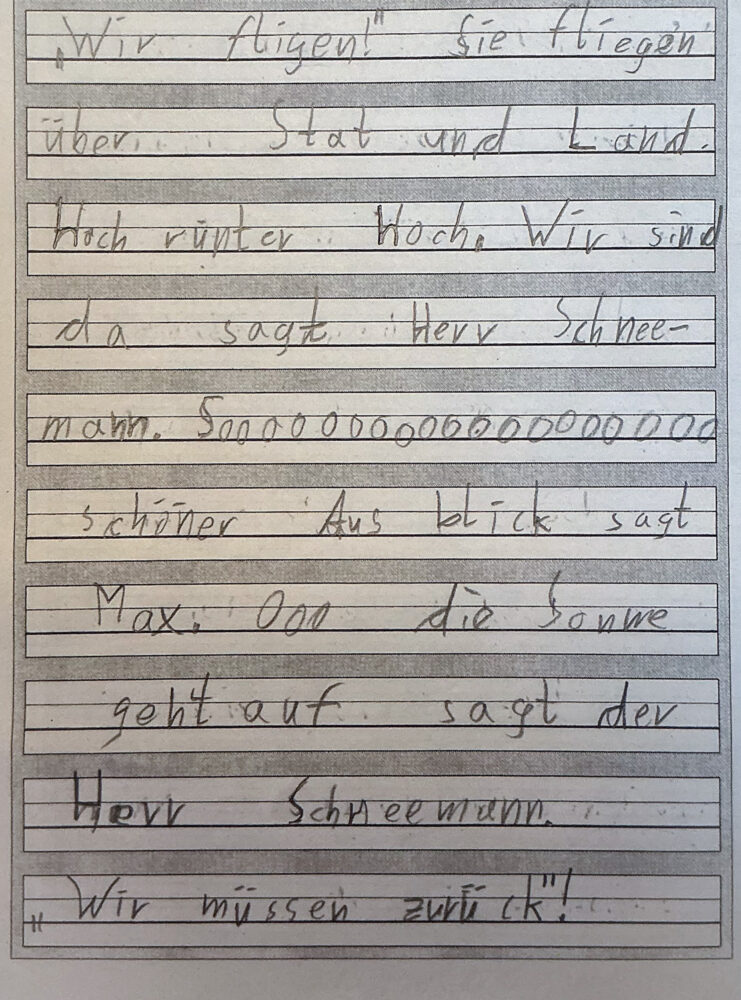 „Wir fligen!" Sie fliegen
über Stat und Land.
Hoch rünter Hoch. Wir sind
da sagt Herr Schnee-
mann. Sooooooooooooooooo
schöner Aus blick sagt
Max. Ooo die Sonne
geht auf sagt der
Herr Schneemann.
„Wir müssen zurück"!